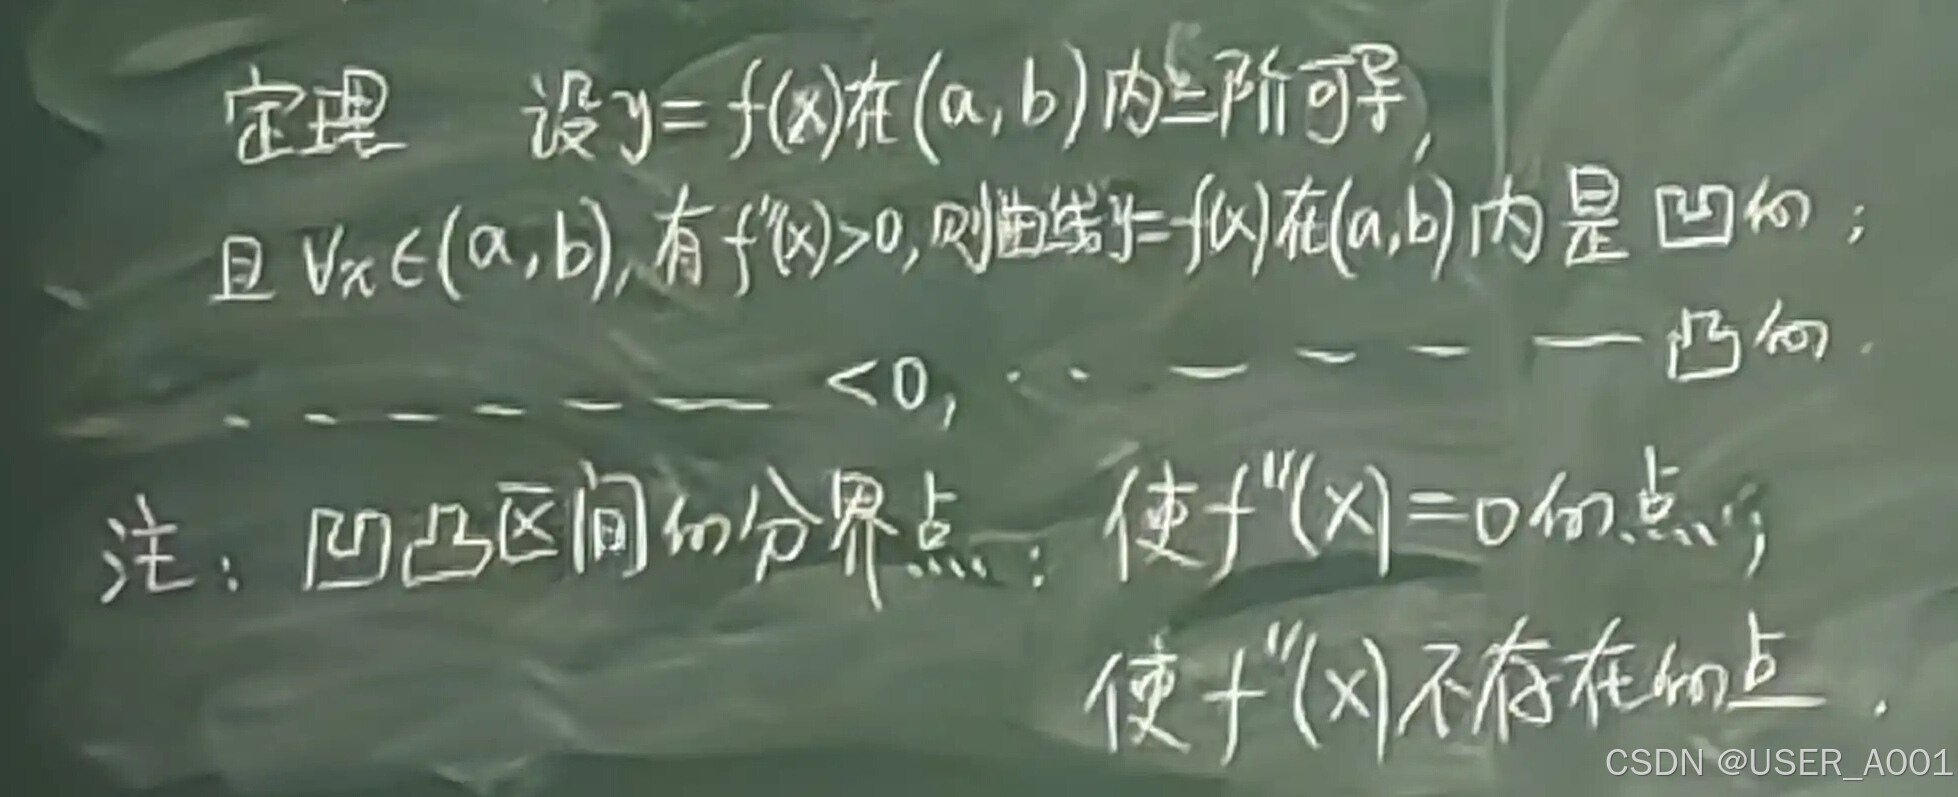 定理 设y=f(x)在(a,b)内二阶可导,
且∀x∈(a,b),有f″(x)>0,则曲线y=f(x)在(a,b)内是凹的;
<0, 凸的.
注:凹凸区间的分界点:使f″(x)=0的点;
使f″(x)不存在的点.
CSDN @USER_A001